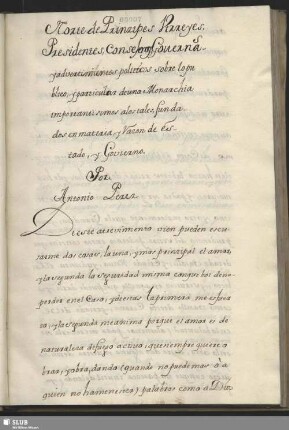 Norte de Principes, Virreyes,
Presidentes, Consejos, Governa.s
y advertencias politicas sobre lo pu
blico, y particular de una Monarchia
importantissimas a los tales, funda
dos en materia, y raçon de Es
tado, y Gouierno.
Por
Antonio Perez.
De este atrevimento bien pueden escu
sarme dos cosas, la una, y mas principal el amor,
y la segunda la seguridad misma con que hoi de no
perder en el caso, y destas la primera me esfuer
ça, y la segunda me anima porque el amor es de
naturaleza de fuego activo, que siempre quiere o
brar, y obra, dando (quando no puede mas o à
quien no ha menester) palabras como a Dios
SLUB